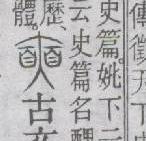 傳徵
史篇。姚下
云史篇名醜
歷、
體。
古文